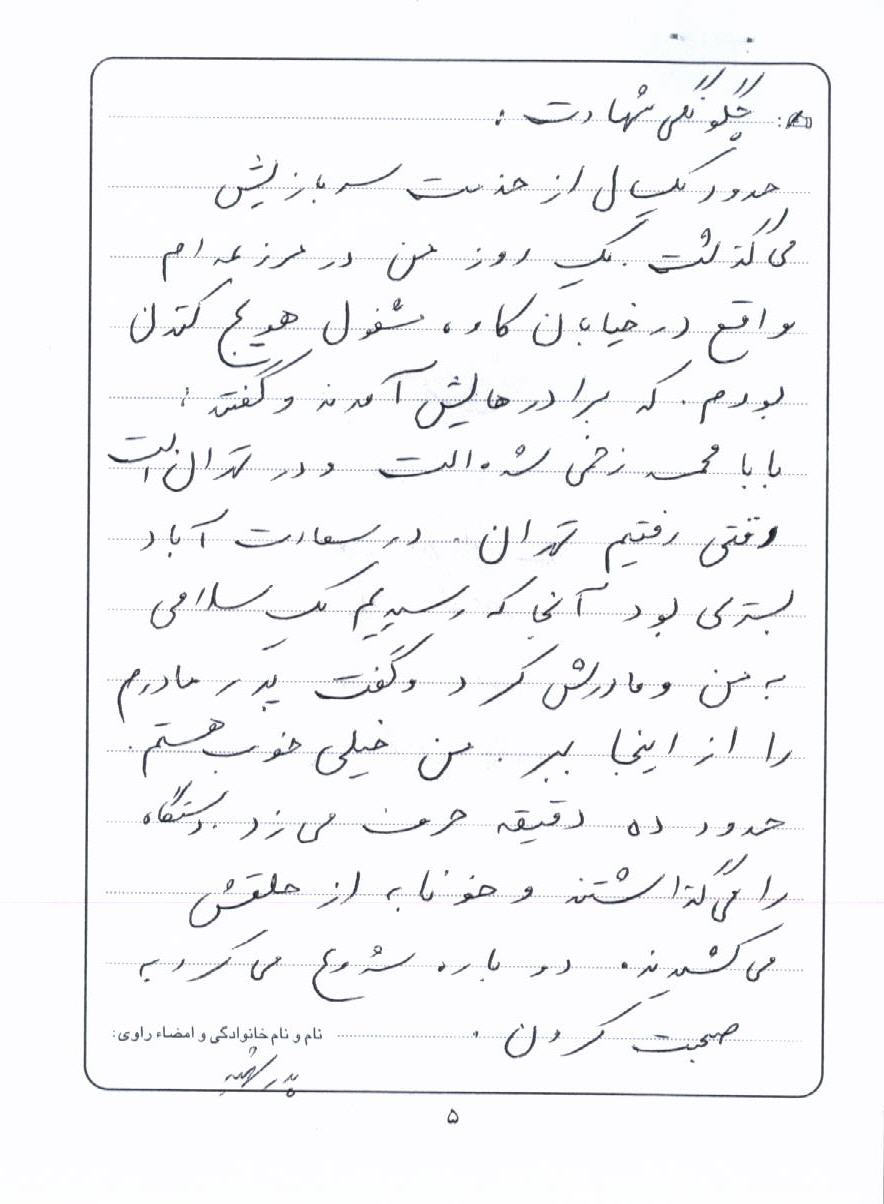 چگونگی شهادت :
حدود یکسال از خدمت سربازیش
می گذشت . یک روز من در مزرعه ام
واقع در خیابان کاوه مشغول هویج کندن
بودم . که برادرهایش آمدند و گفتند :
بابا محمد زخمی شده است و در تهران است
وقتی رفتیم تهران . در سعادت آباد
بستری بود آنجا که رسیدیم یک سلامی
به من و مادرش کرد و گفت پدر مادرم
را از اینجا ببر . من خیلی خوب هستم .
حدود ده دقیقه حرف می زد دستگاه
را می گذاشتند و خونابه از حلقش
می کشیدند . دوباره شروع می کرد به
صحبت کردن .
نام و نام خانوادگی و امضاء راوی:
پدر شهید
۵